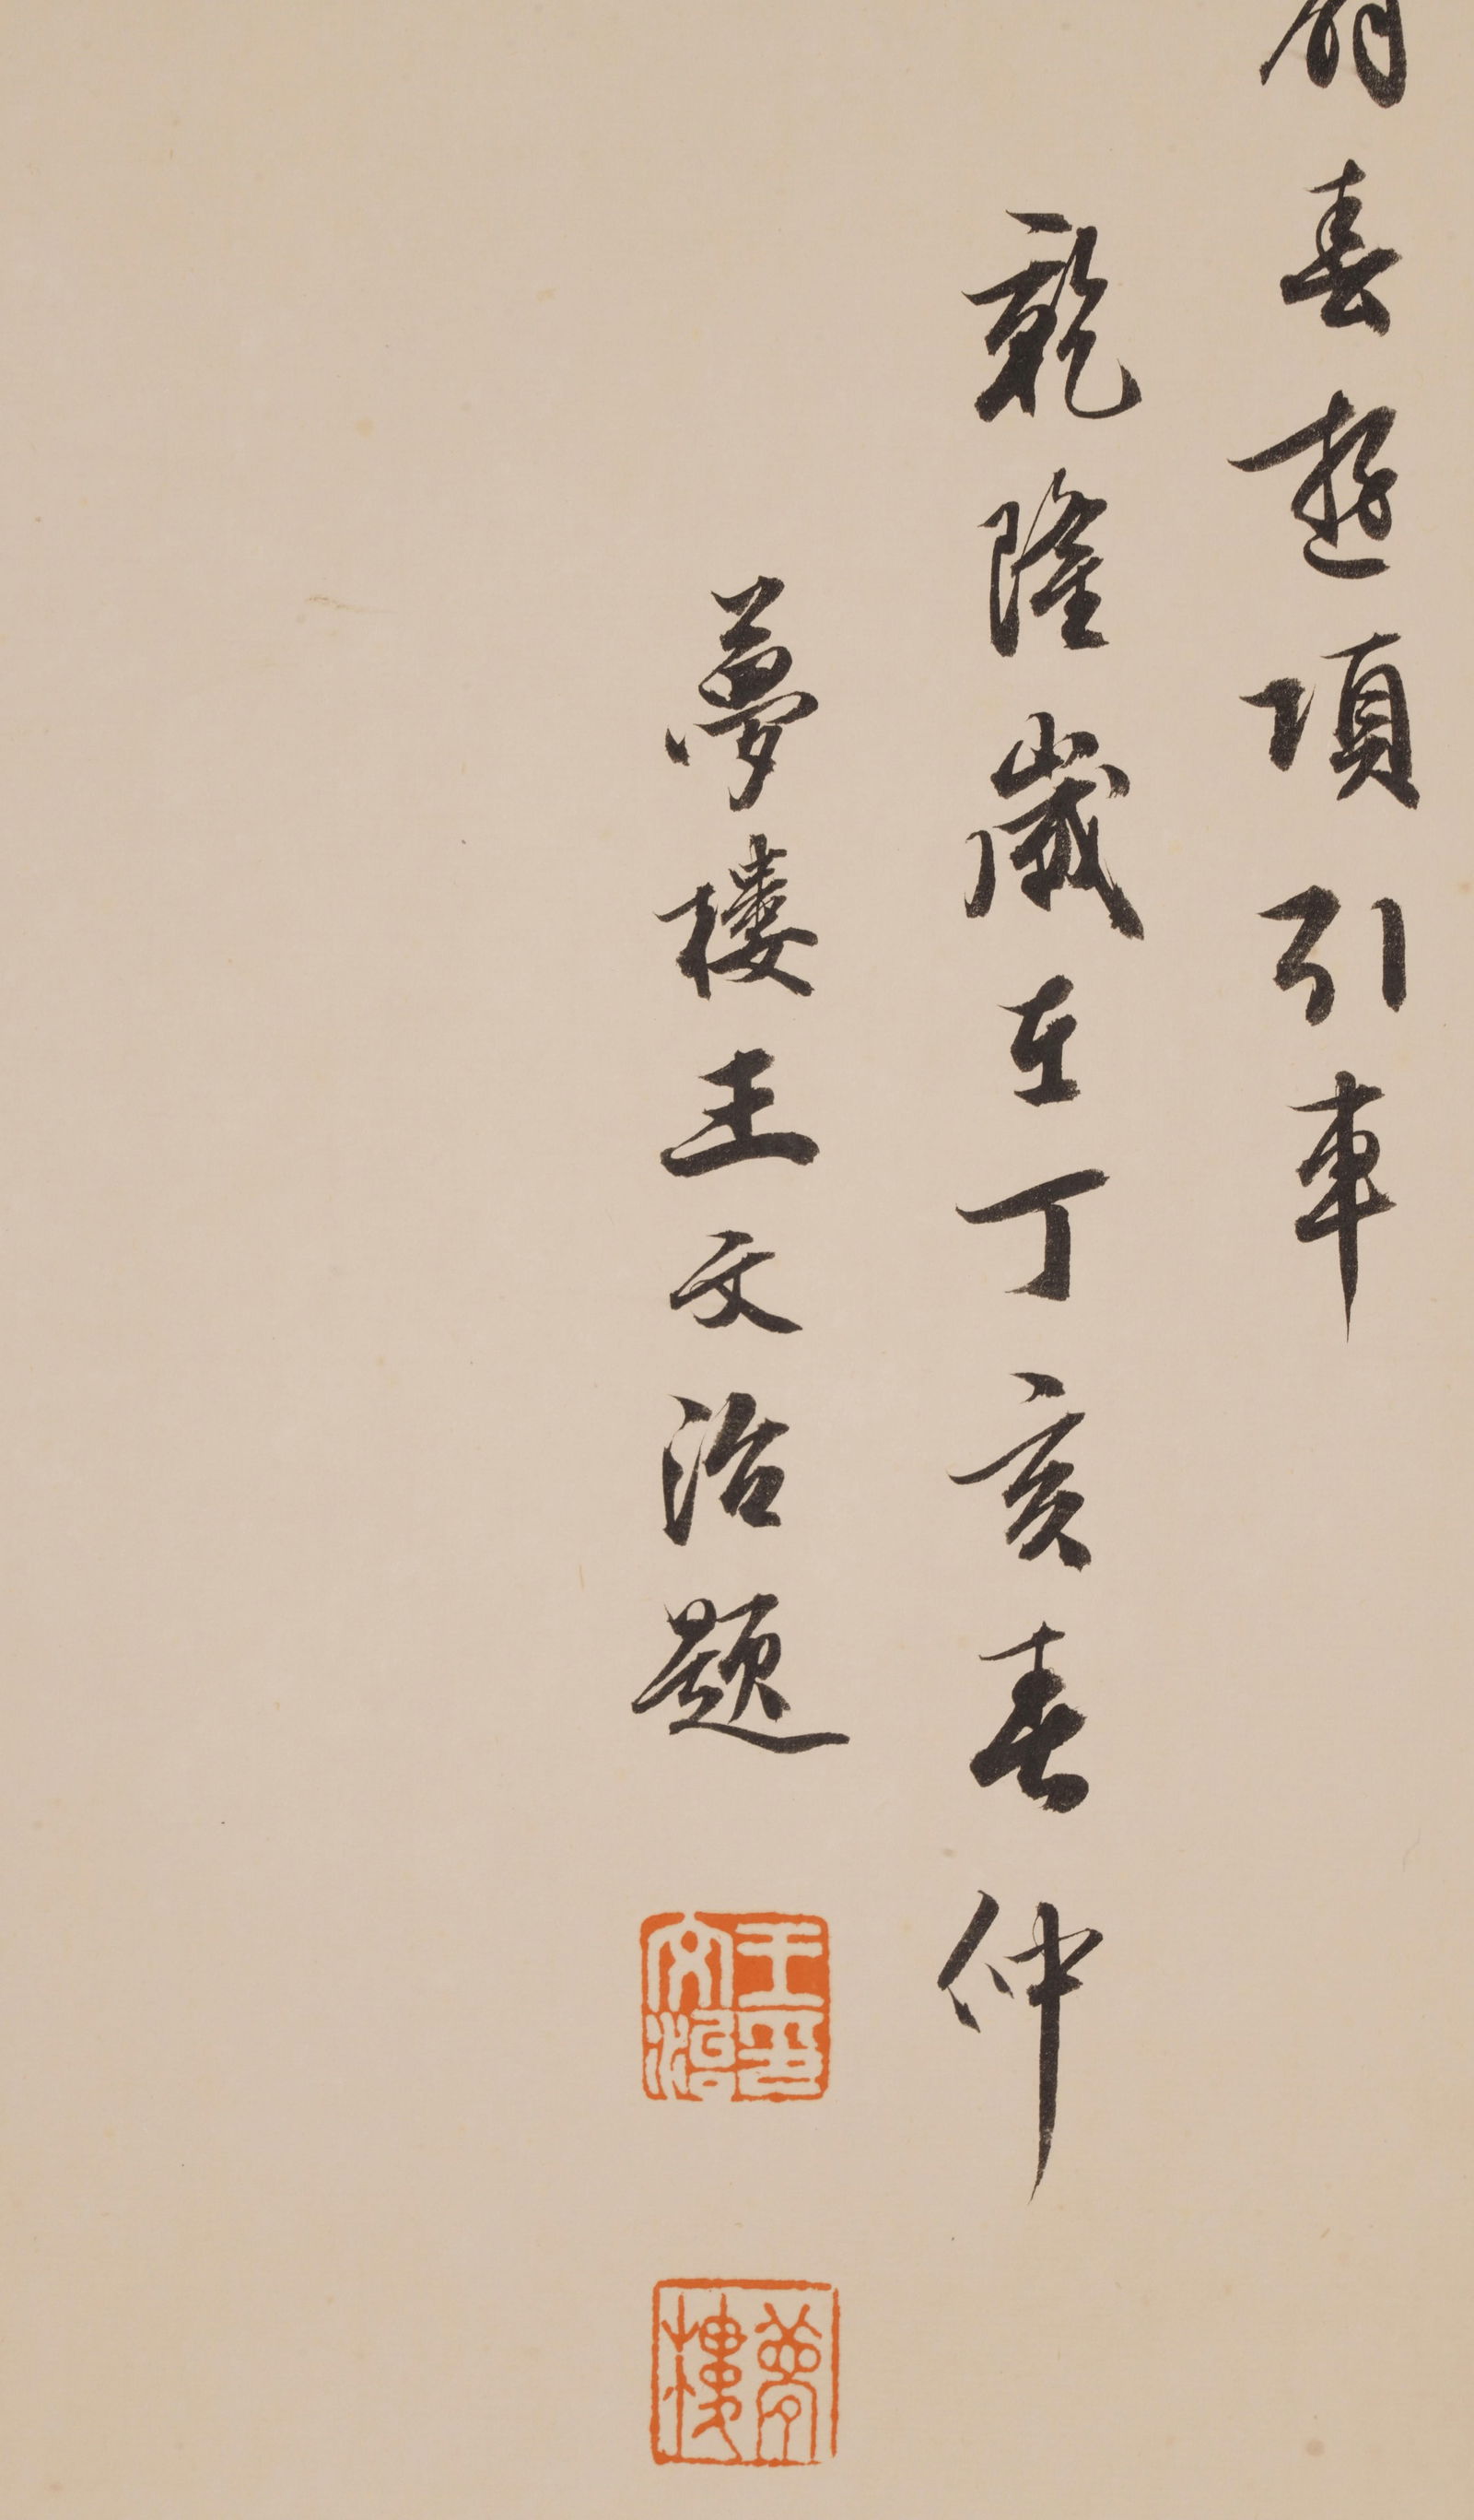 春遊項引車
乾隆歲在丁亥春仲
夢樓王文治題
王文治印
夢樓